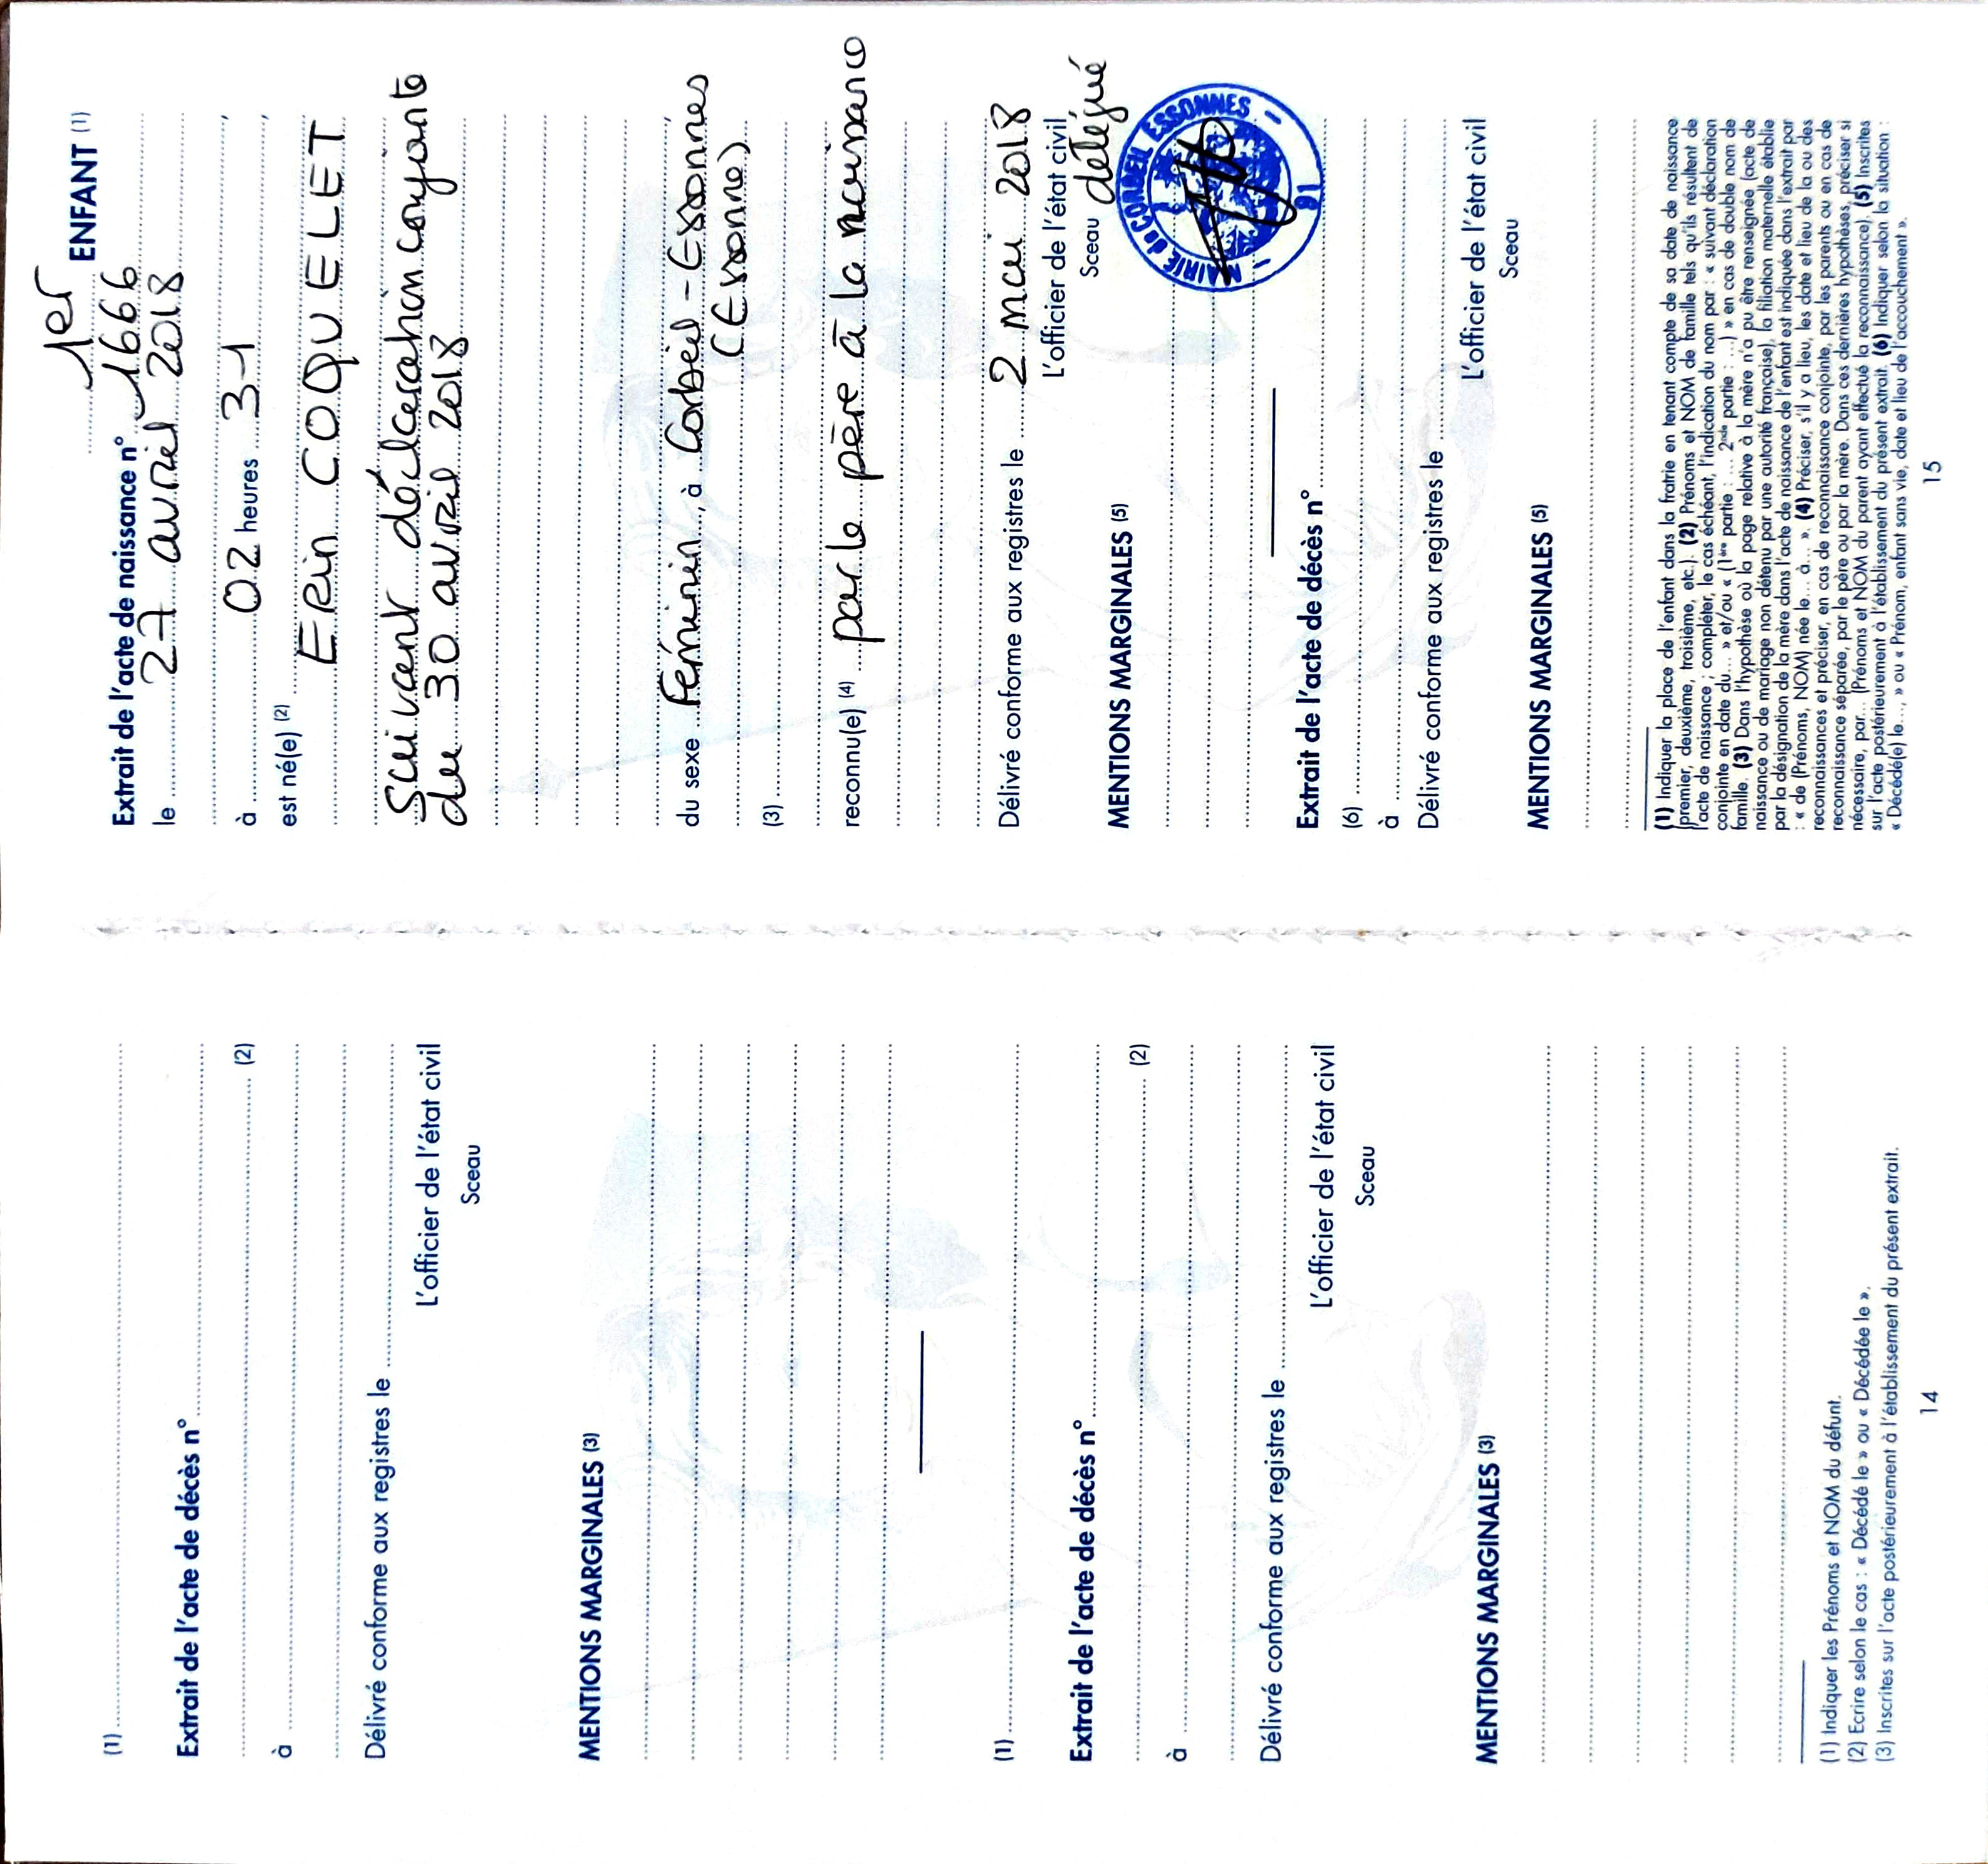 (1)
Extrait de l'acte de décès n°
(2)
à
Délivré conforme aux registres le
L'officier de l'état civil
Sceau
MENTIONS MARGINALES (3)
(1)
Extrait de l'acte de décès n°
(2)
à
Délivré conforme aux registres le
L'officier de l'état civil
Sceau
MENTIONS MARGINALES (3)
(1) Indiquer les Prénoms et NOM du défunt.
(2) Ecrire selon le cas : « Décédé le » ou « Décédée le ».
(3) Inscrites sur l'acte postérieurement à l'établissement du présent extrait.
14
1er ENFANT (1)
Extrait de l'acte de naissance n° 1666
le 27 avril 2018
à 02 heures 31,
est né(e) (2)
Erin COQUELET
Suivant déclaration conjointe
du 30 avril 2018
du sexe Féminin, à Corbeil-Essonnes,
(Essonne)
(3)
reconnu(e) (4) par le père à la naissance
Délivré conforme aux registres le 2 mai 2018
L'officier de l'état civil
Sceau délégué
MAIRIE de CORBEIL ESSONNES
91
MENTIONS MARGINALES (5)
Extrait de l'acte de décès n°
(6)
à
Délivré conforme aux registres le
L'officier de l'état civil
Sceau
MENTIONS MARGINALES (5)
(1) Indiquer la place de l'enfant dans la fratrie en tenant compte de sa date de naissance
(premier, deuxième, troisième, etc.). (2) Prénoms et NOM de famille tels qu'ils résultent de
l'acte de naissance ; compléter, le cas échéant, l'indication du nom par : « suivant déclaration
conjointe en date du... » et/ou « (1ère partie : ... 2nde partie : ...) » en cas de double nom de
famille. (3) Dans l'hypothèse où la page relative à la mère n'a pu être renseignée (acte de
naissance ou de mariage non détenu par une autorité française), la filiation maternelle établie
par la désignation de la mère dans l'acte de naissance de l'enfant est indiquée dans l'extrait par
: « de (Prénoms, NOM) née le... à... ». (4) Préciser, s'il y a lieu, les date et lieu de la ou des
reconnaissances et préciser, en cas de reconnaissance conjointe, par les parents ou en cas de
reconnaissance séparée, par le père ou par la mère. Dans ces dernières hypothèses, préciser si
nécessaire, par... (Prénoms et NOM du parent ayant effectué la reconnaissance). (5) Inscrites
sur l'acte postérieurement à l'établissement du présent extrait. (6) Indiquer selon la situation :
« Décédé(e) le..., » ou « Prénom, enfant sans vie, date et lieu de l'accouchement ».
15